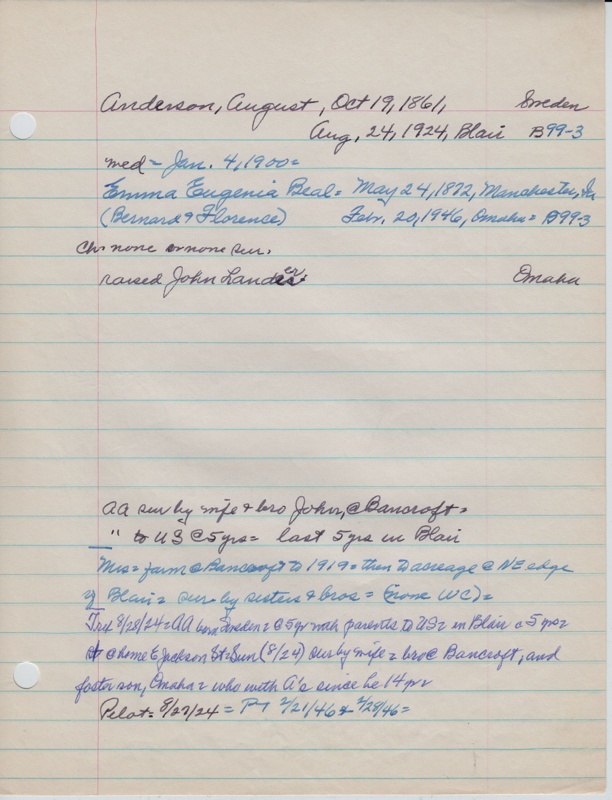 Anderson, August, Oct 19, 1861, Sweden
Aug, 24, 1924, Blair B99-3
med = Jan. 4, 1900=
Emma Eugenia Beal = May 24, 1872, Manchester,
(Bernard & Florence) Febr. 20, 1946, Omaha = B99-3
Ch: none or none sur.
raised John Omaha
AA sur by wife & bro John, @ Bancroft =
" to US @ 5 yrs = last 5 yrs in Blair
Mrs = farm @ Bancroft to 1919 = then to acreage @ NE edge
of Blair = sur by sisters & bros = (none WC) =
8/28/24 = AA born Sweden = @ 5 yr with parents to US = in Blair 5 yrs =
@ home E Jackson St = Sun (8/24) sur by wife = bro @ Bancroft, and
foster son, Omaha = who with A's since he 14 yr =
Pilot = 8/27/24 = 2/21/46 & 2/28/46 =